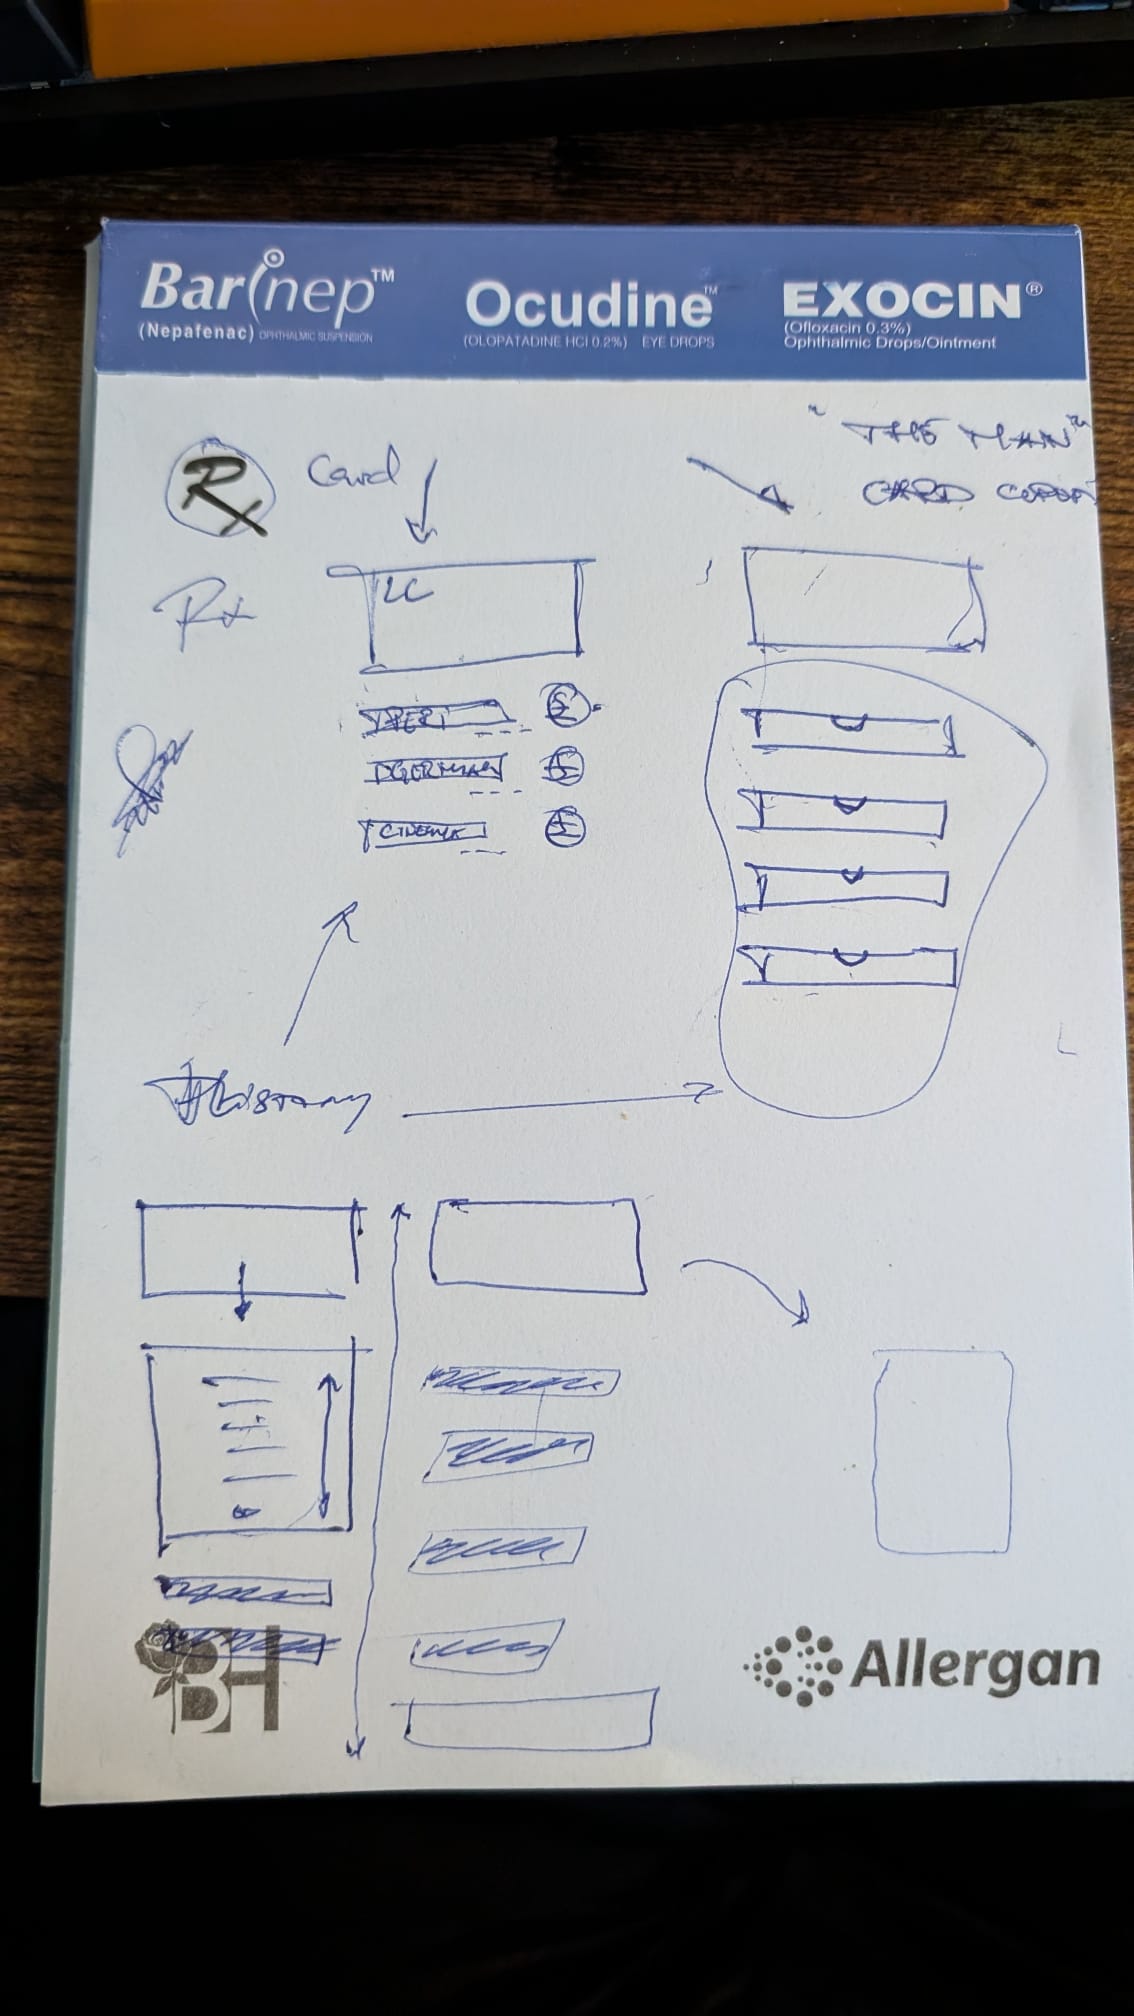 Barinep™
(Nepafenac) OPHTHALMIC SUSPENSION
Ocudine™
(OLOPATADINE HCl 0.2%) EYE DROPS
EXOCIN®
(Ofloxacin 0.3%)
Ophthalmic Drops/Ointment
"THE MAIN"
CARD
Rx
Card
Rx
CINEMA
History
BH
Allergan